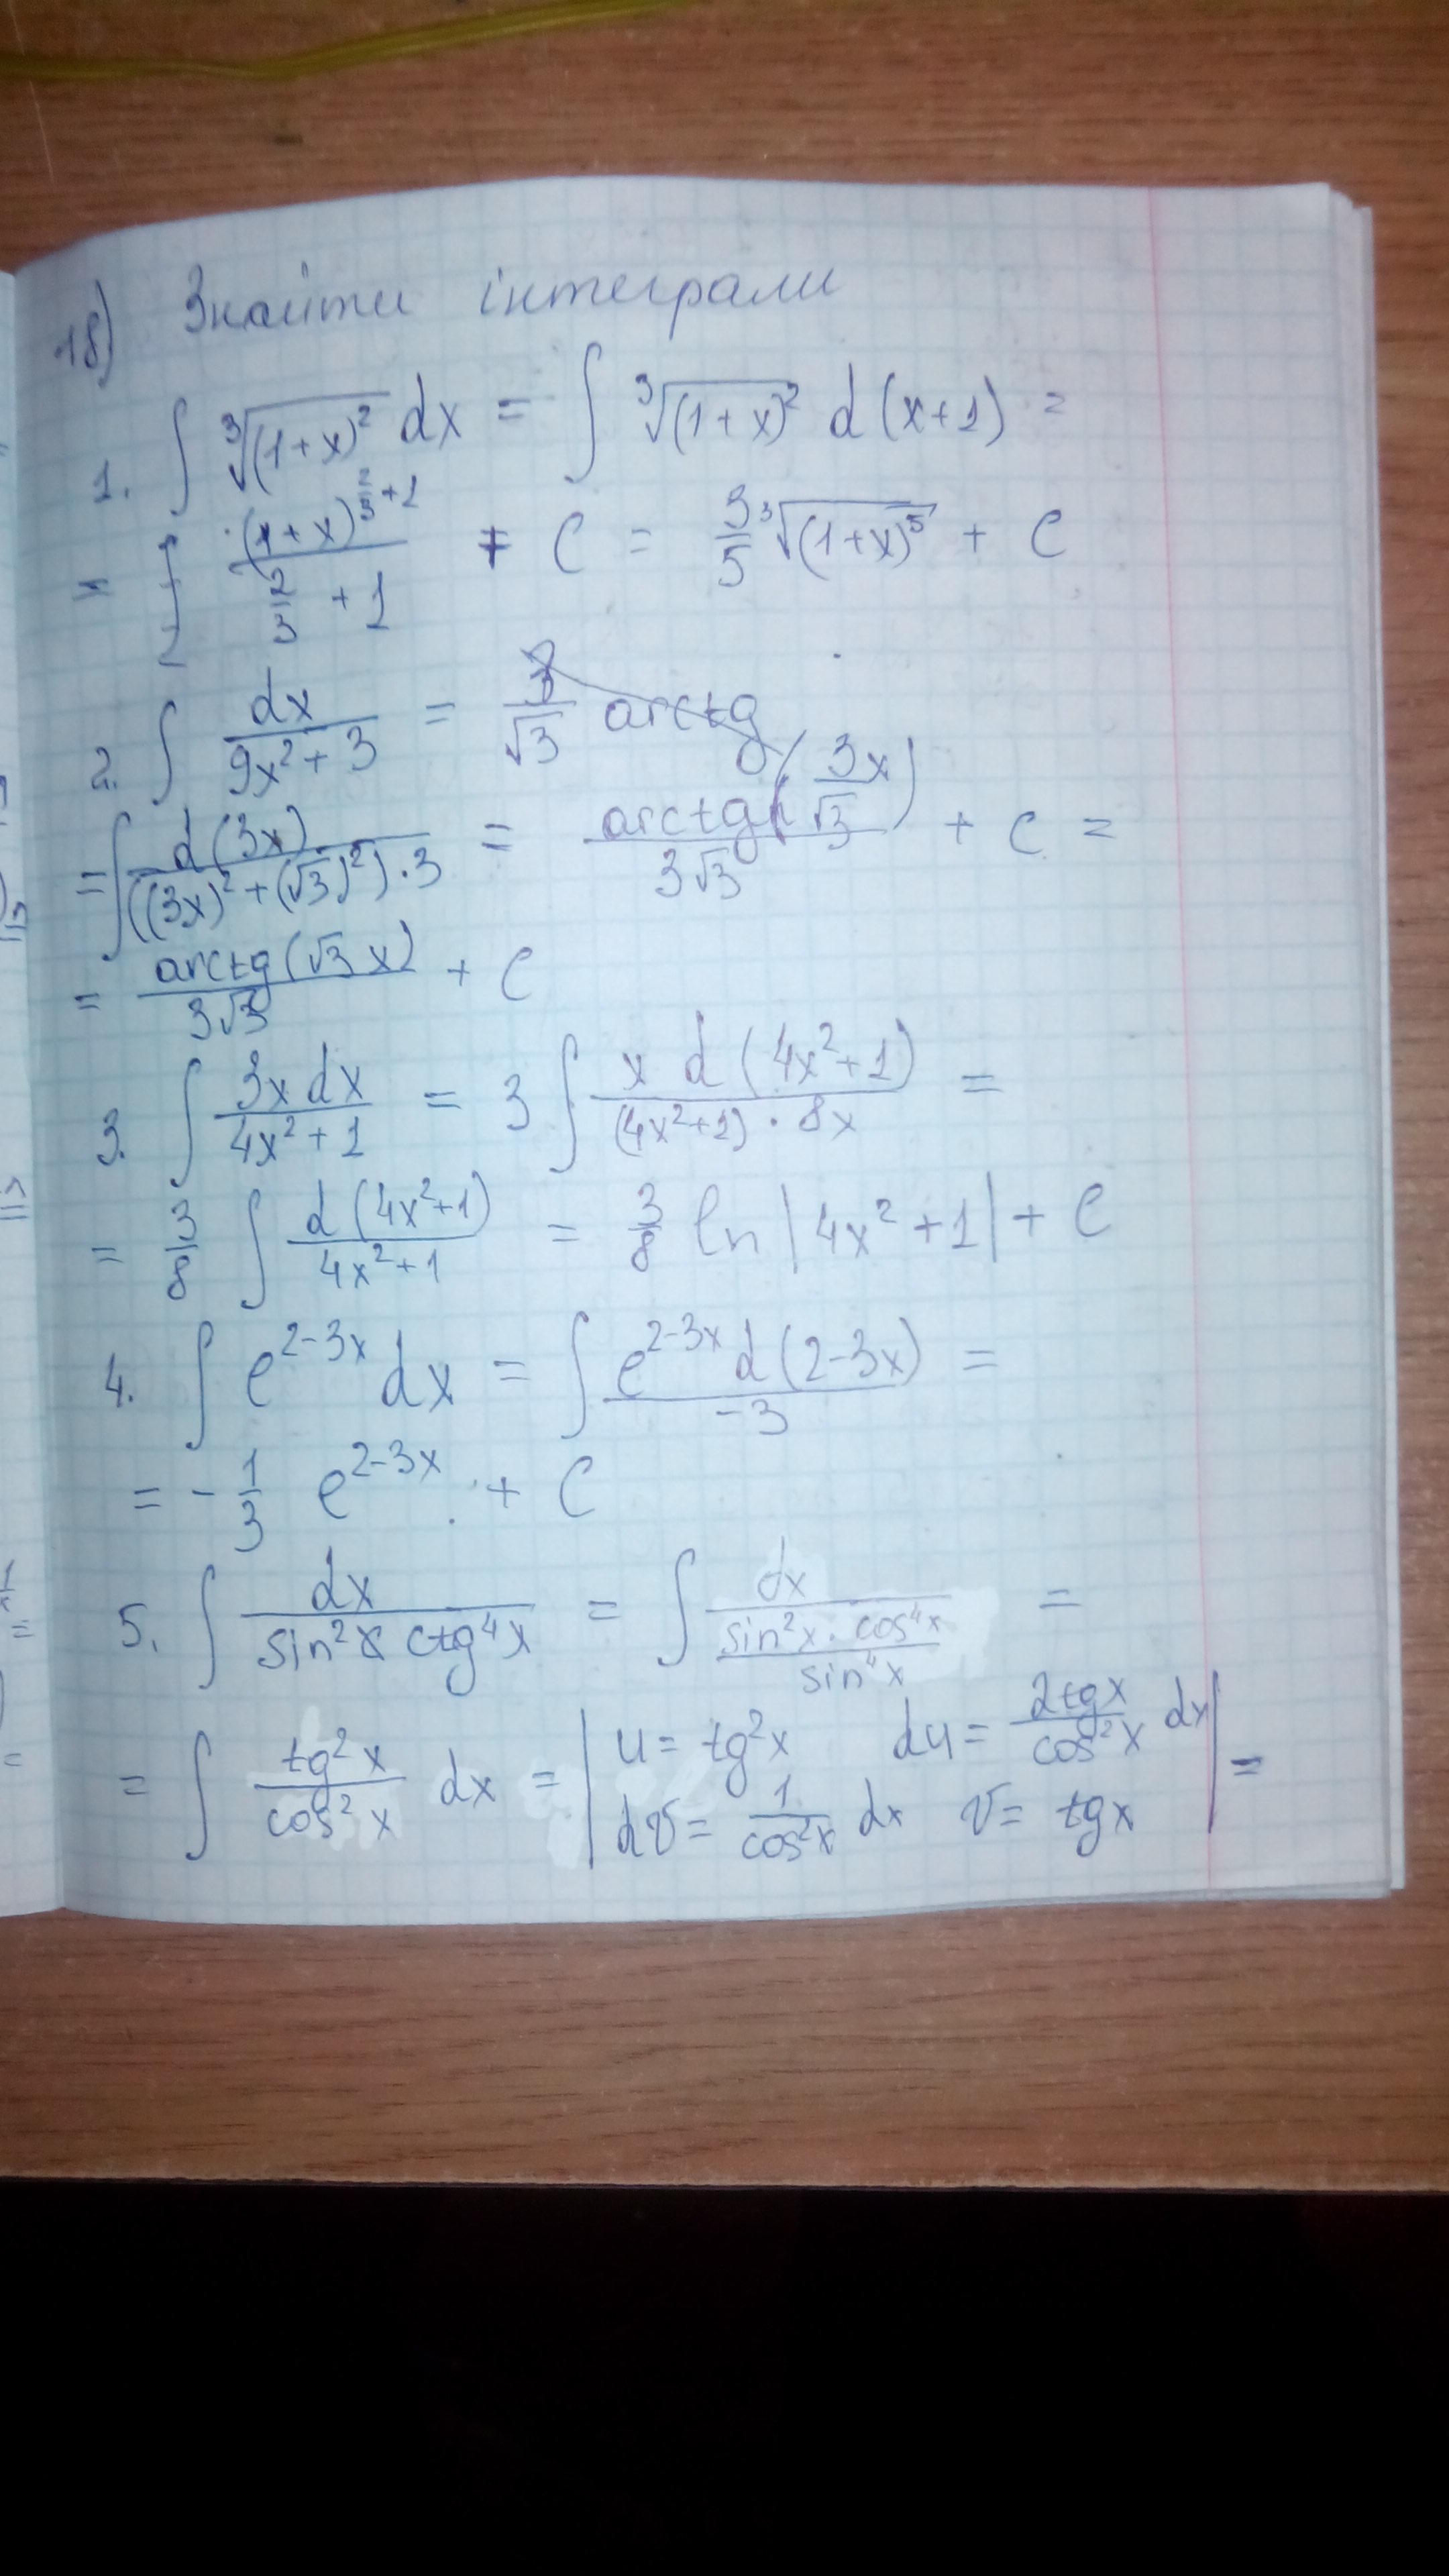 18) Знайти інтеграли
1. ∫ ∛(1+x)² dx = ∫ ∛(1+x)² d(x+1) =
= ∫ (1+x)^(2/3+1) / (2/3 + 1) + C = 3/5 ∛(1+x)⁵ + C
2. ∫ dx/(9x²+3) = 3/√3 arctg
= ∫ d(3x)/(((3x)²+(√3)²)·3) = arctg(3x/√3)/(3√3) + C =
= arctg(√3x)/(3√3) + C
3. ∫ 3x dx/(4x²+1) = 3 ∫ x d(4x²+1)/((4x²+1)·8x) =
= 3/8 ∫ d(4x²+1)/(4x²+1) = 3/8 ln|4x²+1| + C
4. ∫ e^(2-3x) dx = ∫ e^(2-3x) d(2-3x)/(-3) =
= -1/3 e^(2-3x) + C
5. ∫ dx/(sin²x ctg⁴x) = ∫ dx/((sin²x·cos⁴x)/sin⁴x) =
= ∫ tg²x/cos²x dx = | u = tg²x du = 2tgx/cos²x dx
dv = 1/cos²x dx v = tgx | =